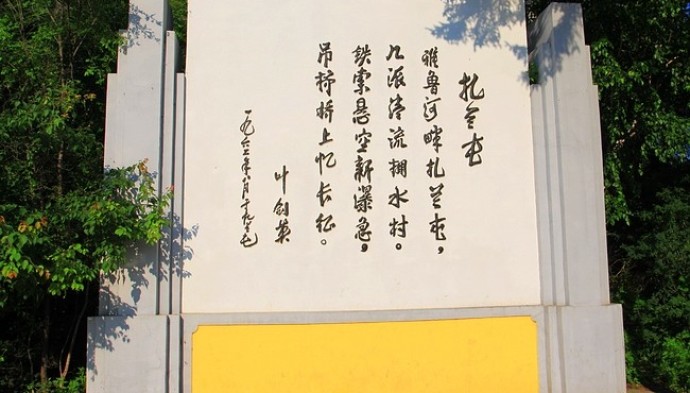 扎兰屯
雅鲁河畔扎兰屯，
几派清流拥水村。
铁索悬空新瀑急，
吊桥桥上忆长征。
叶剑英
一九六二年八月十九